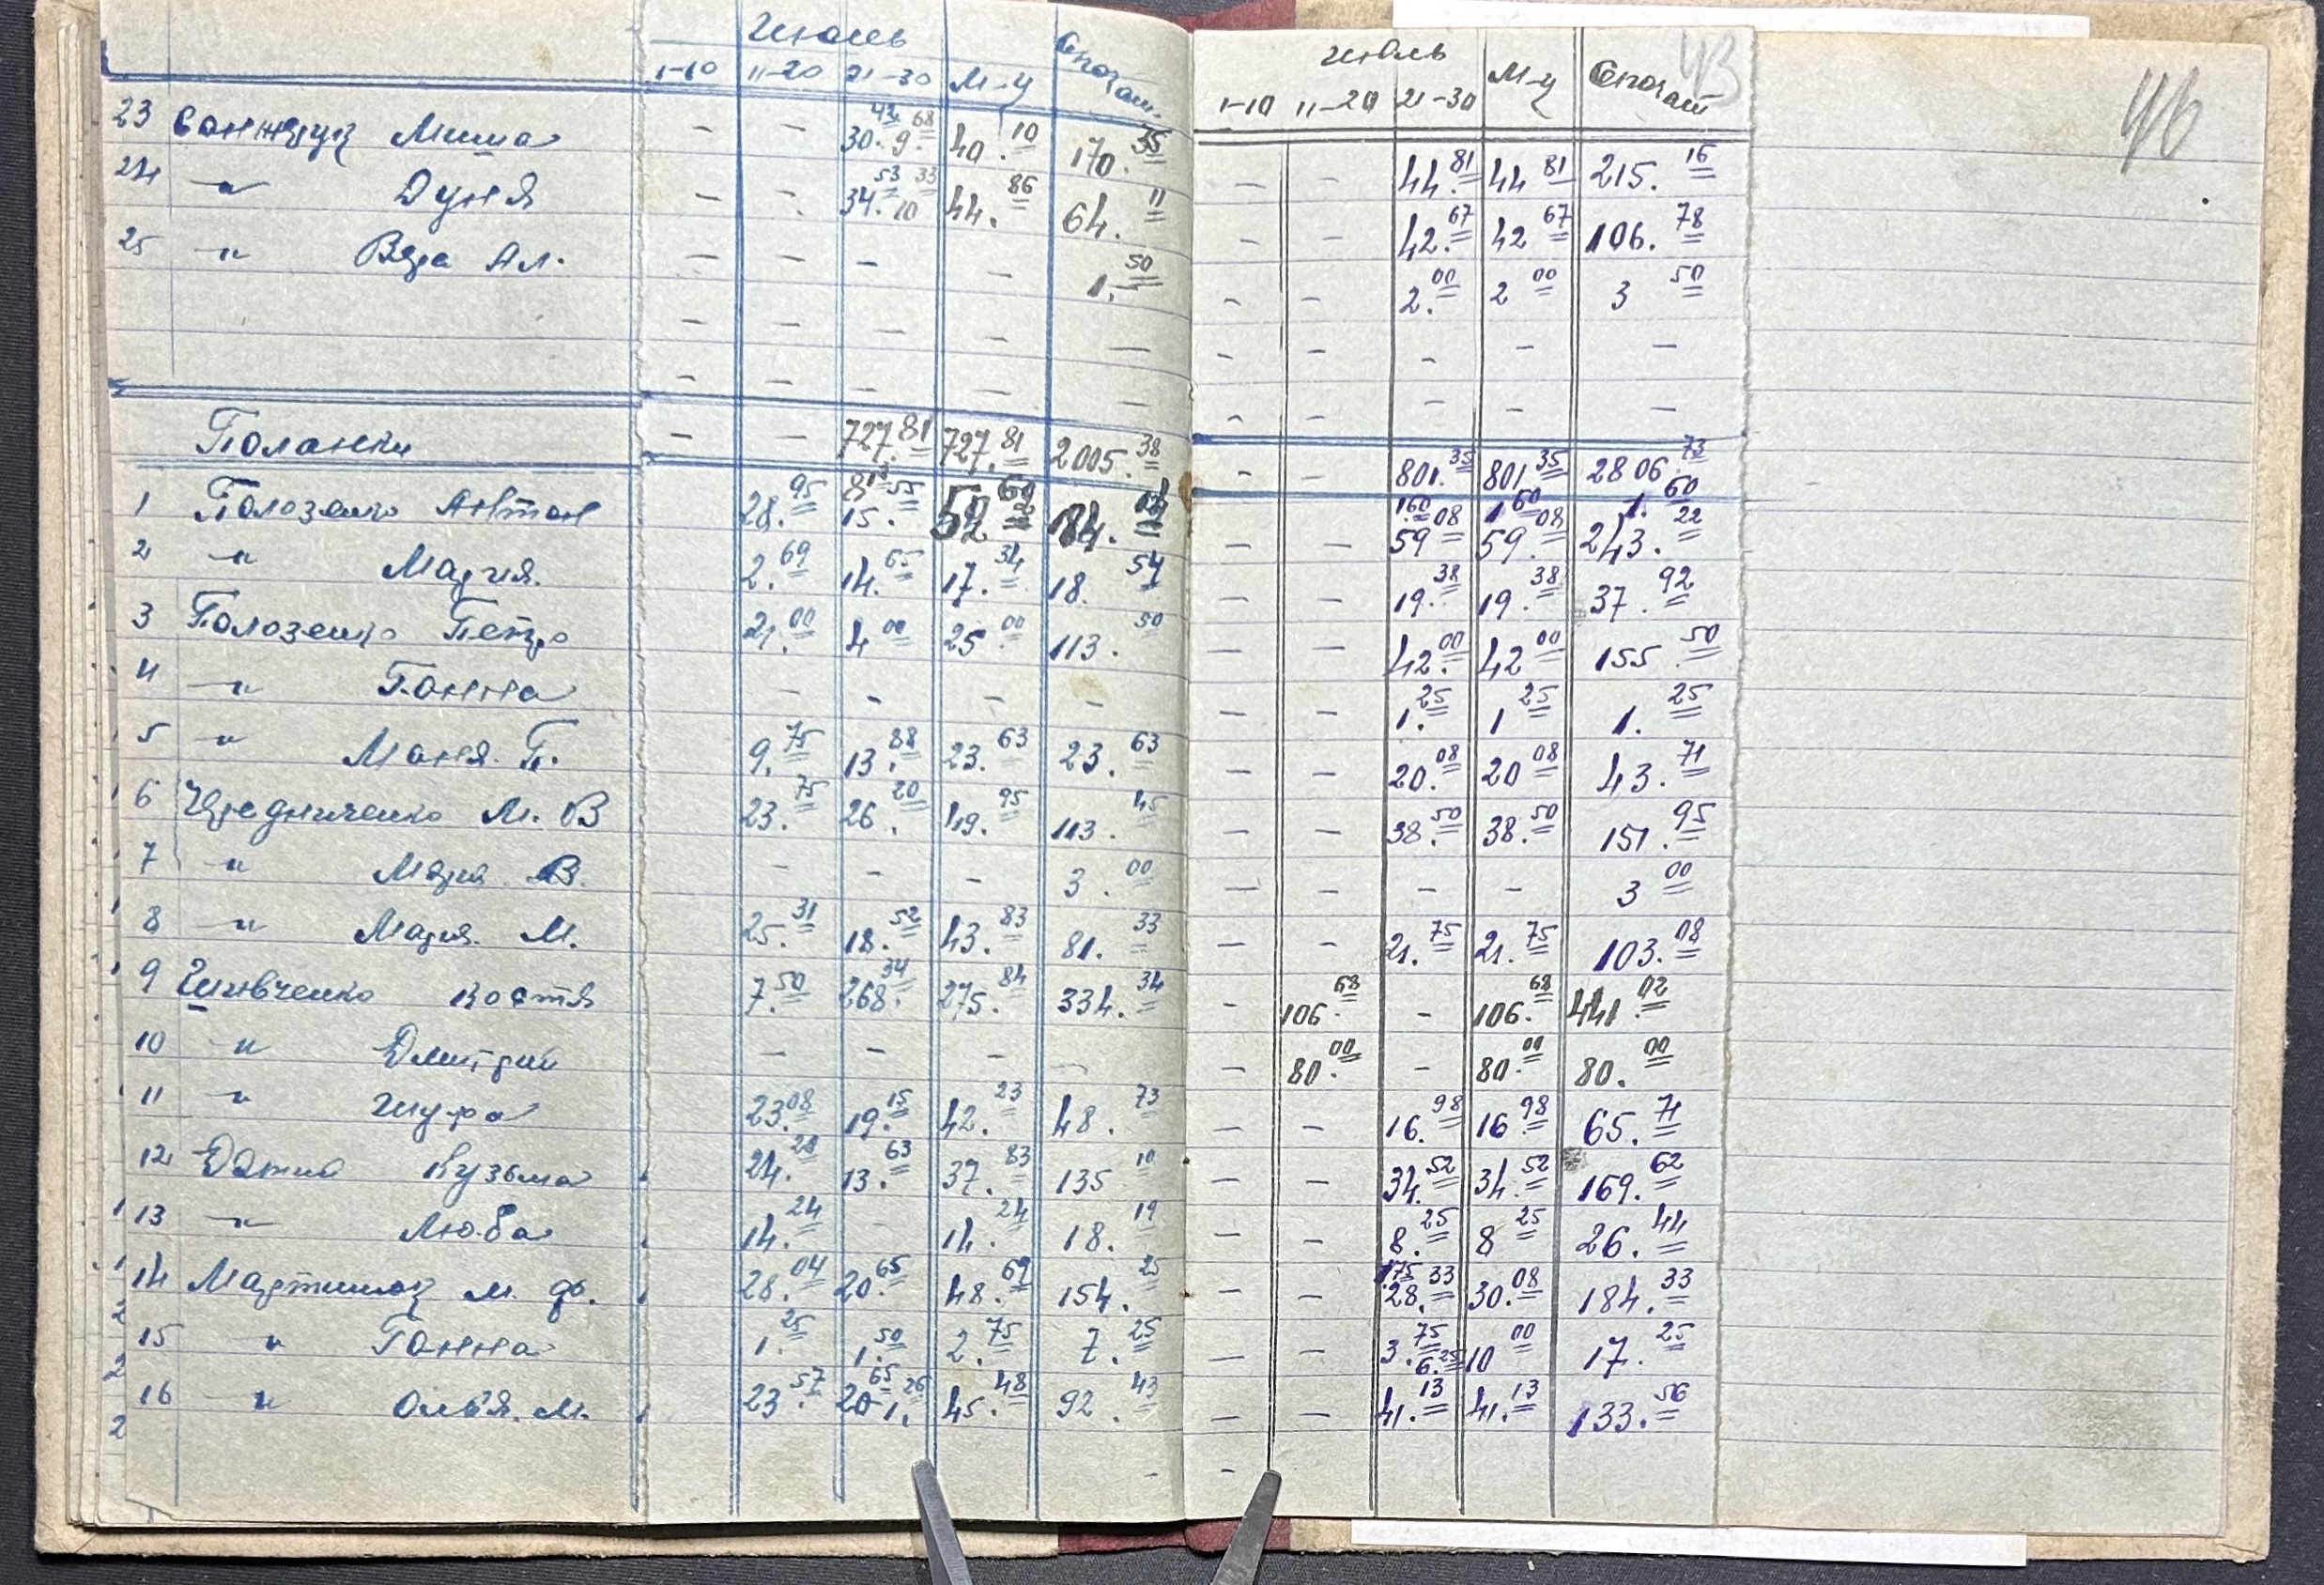 Июнь Июль 43 46
1-10 11-20 21-30 М-ц Спочат. 1-10 11-20 21-30 М-ц Спочат
23 Санжура Миша - - 30.42 9.68 40.10 170.35 - - 44.81 44.81 215.16
24 -"- Дуня - - 34.53 10.33 44.86 64.11 - - 42.67 42.67 106.78
25 -"- Вера Ал. - - - - 1.50 - - 2.00 2.00 3.50
- - - - - - - - - -
- - - - - - - - - -
Поланки - - 727.81 727.81 2005.38 - - 801.35 801.35 2806.73
1.60 1.60 1.60
1 Полозенко Антон 28.95 15.55 184.14 - - 59.08 59.08 243.22
2 -"- Мария. 2.69 14.65 17.34 18.54 - - 19.38 19.38 37.92
3 Полозенко Петро 21.00 4.00 25.00 113.50 - - 42.00 42.00 155.50
4 -"- Ганна - - - - - - 1.25 1.25 1.25
5 -"- Маня. П. 9.75 13.88 23.63 23.63 - - 20.08 20.08 43.71
6 Чередниченко М. В 23.75 26.20 49.95 113.45 - - 38.50 38.50 151.95
7 -"- Мария В. - - - 3.00 - - - - 3.00
8 -"- Мария. М. 25.31 18.52 43.83 81.33 - - 21.75 21.75 103.08
9 Костя 7.50 268.34 275.84 334.34 - 106.68 - 106.68 441.02
10 -"- Дмитрий - - - - - 80.00 - 80.00 80.00
11 -"- Шура 23.08 19.15 42.23 48.73 - - 16.98 16.98 65.71
12 Кузьма 24.20 13.63 37.83 135.10 - - 34.52 34.52 169.62
13 -"- Люба 14.24 - 14.24 18.19 - - 8.25 8.25 26.44
14 Мартинюк М. Ф. 28.04 20.65 48.69 154.25 - - 1.75 28.33 30.08 184.33
15 -"- Ганна 1.25 1.50 2.75 7.25 - - 3.75 6.25 10.00 17.25
16 -"- М. 23.57 20.65 1.26 45.48 92.43 - - 41.13 41.13 133.56
- -